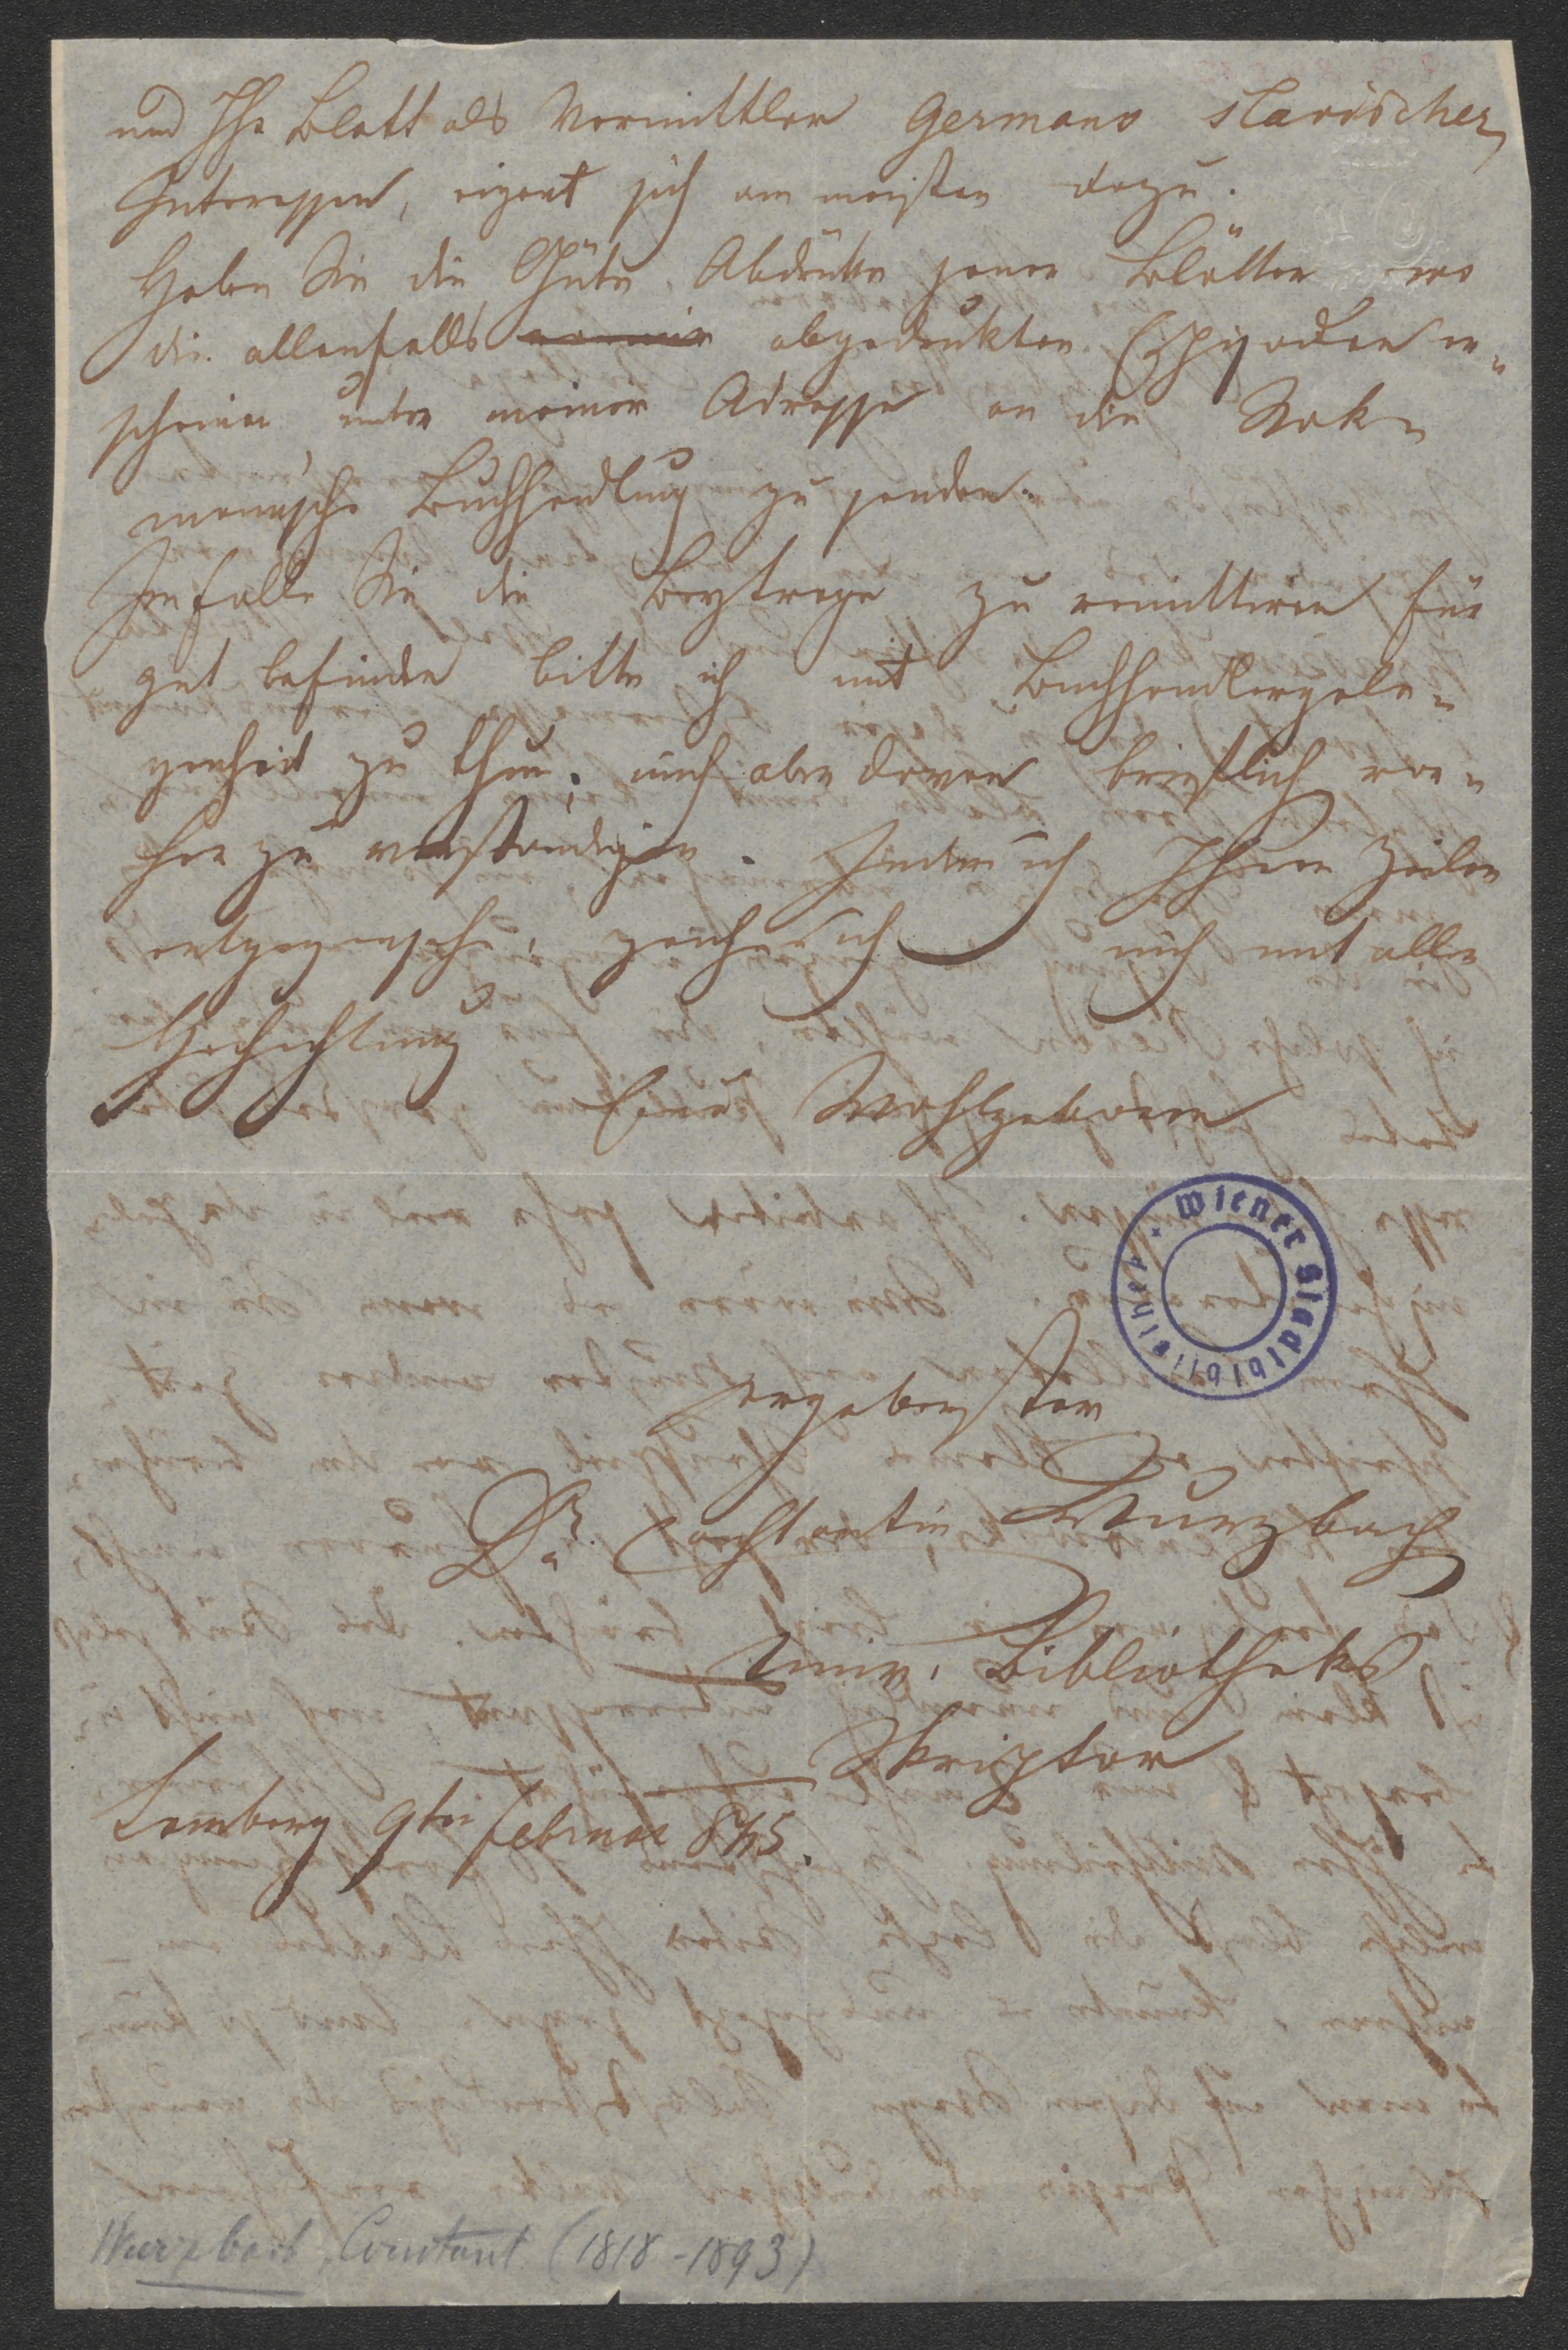 und Ihr Blatt als Vermittler Germano slavischer
Interessen, eignet sich am meisten dazu.
Haben Sie die Güte, Abdrücke jener Blätter wo
die allenfalls abgedrukten Episoden er-
scheinen, unter meiner Adresse an die
mann'sche Buchhandlung zu senden.
Im Falle Sie die Beytrage zu remittiren für
gut befinden bitte ich mit Buchhandlergele-
genheit zu thun; mich aber davon brieflich vor-
her zu verständigen. Indem ich Ihren Zeilen
entgegensehe, zeichne ich mich mit aller
Hochachtung
Euer Wohlgeboren
Wiener Stadtbibliothek
ergebenster
Dr. Constantin Wurzbach
Univ. Bibliotheks
Skriptor
Lemberg 9ten Februar 845.
Wurzbach, Constant (1818-1893)